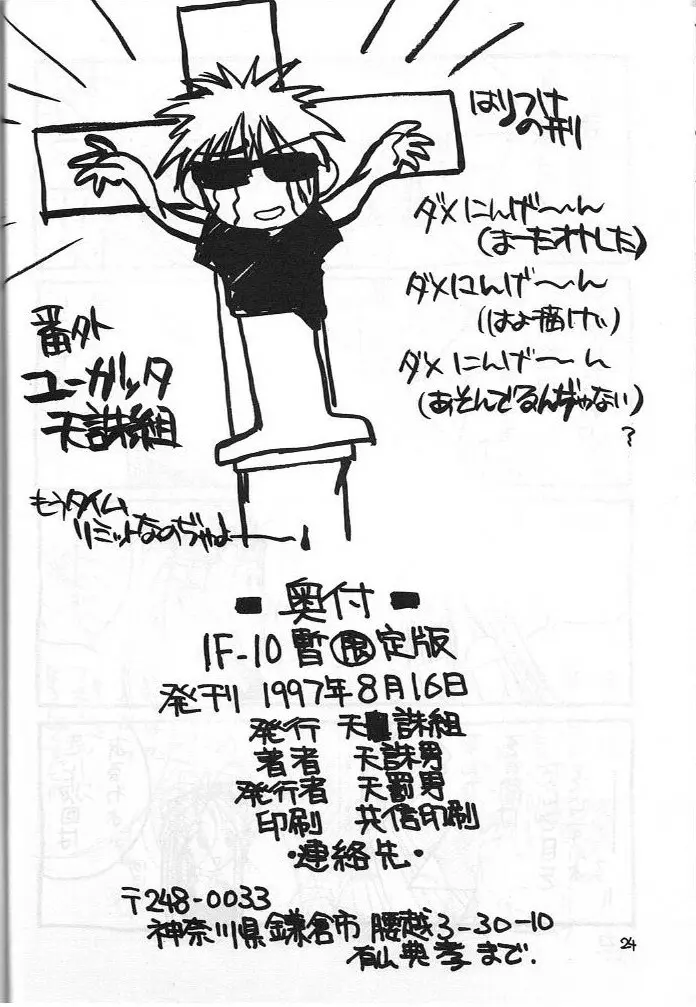 はりつけ
の刑
ダメにんげ〜〜ん
(まーたオトした)
ダメにんげ〜〜ん
(はよ描けい)
ダメにんげ〜〜ん
(あそんでるんぢゃない)
?
番外
ユーガッタ
天誅組
もうタイム
リミットなのぢゃよー
■ 奥付 ■
IF-10 暫限定版
発刊 1997年8月16日
発行 天誅組
著者 天誅男
発行者 天罰男
印刷 共信印刷
・連絡先・
〒248-0033
神奈川県鎌倉市腰越3-30-10
有山典孝まで.
24